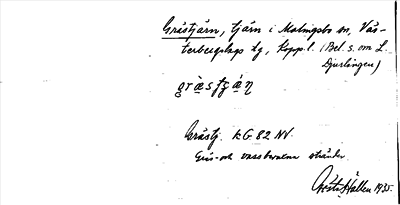 Grästjärn, tjärn i Malingsbo sn, Väs-
terbergslags dg, Kopp.l. (Bel. s. om L.
Djurlingen)
Grästj. kG82 NV.
Gräs- och vassbevuxna stränder.
Gösta Hallen 1935.